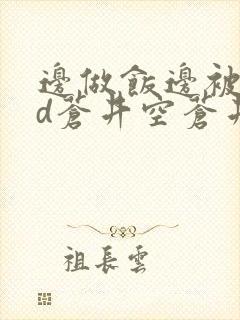 邊做飯邊被
d蒼井空蒼井
祖長雲